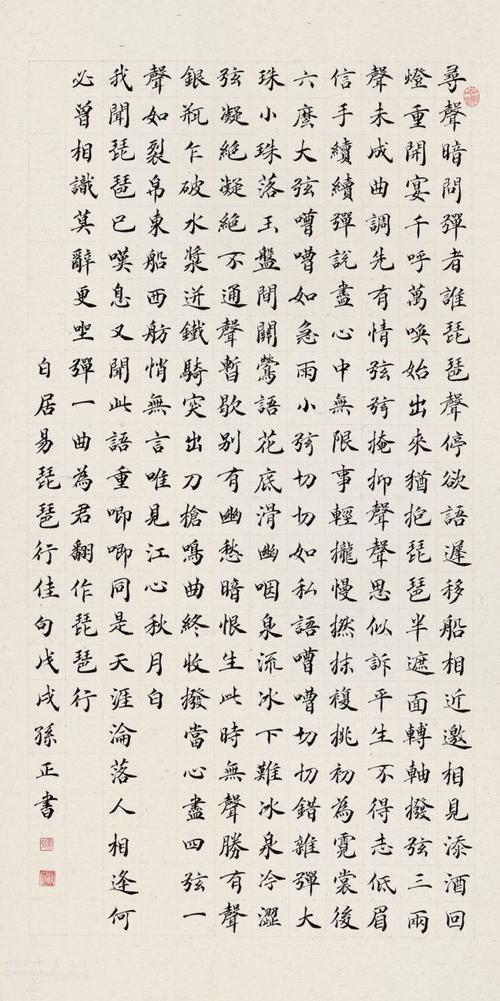 尋聲暗問彈者誰琵琶聲停欲語遲移船相近邀相見添酒回
燈重開宴千呼萬喚始出來猶抱琵琶半遮面轉軸撥弦三兩
聲未成曲調先有情弦弦掩抑聲聲思似訴平生不得志低眉
信手續續彈說盡心中無限事輕攏慢撚抹複挑初為霓裳後
六麼大弦嘈嘈如急雨小弦切切如私語嘈嘈切切錯雜彈大
珠小珠落玉盤間關鶯語花底滑幽咽泉流冰下難冰泉冷澀
弦凝絕凝絕不通聲暫歇別有幽愁暗恨生此時無聲勝有聲
銀瓶乍破水漿迸鐵騎突出刀槍鳴曲終收撥當心盡四弦一
聲如裂帛東船西舫悄無言唯見江心秋月白
我聞琵琶已嘆息又聞此語重唧唧同是天涯淪落人相逢何
必曾相識莫辭更坐彈一曲為君翻作琵琶行
白居易琵琶行佳句戊戌孫正書